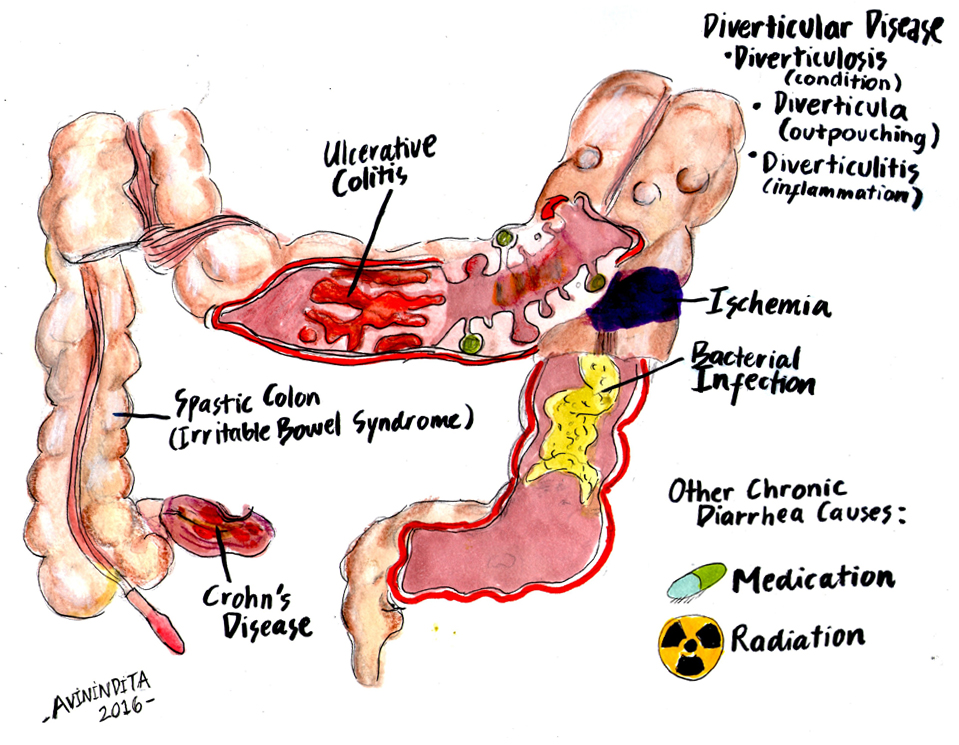 Diverticular Disease
• Diverticulosis
(condition)
• Diverticula
(outpouching)
• Diverticulitis
(inflammation)
Ulcerative
Colitis
Ischemia
Bacterial
Infection
Spastic Colon
(Irritable Bowel Syndrome)
Other Chronic
Diarrhea Causes:
Medication
Crohn's
Disease
Radiation
-AVININDITA
2016-